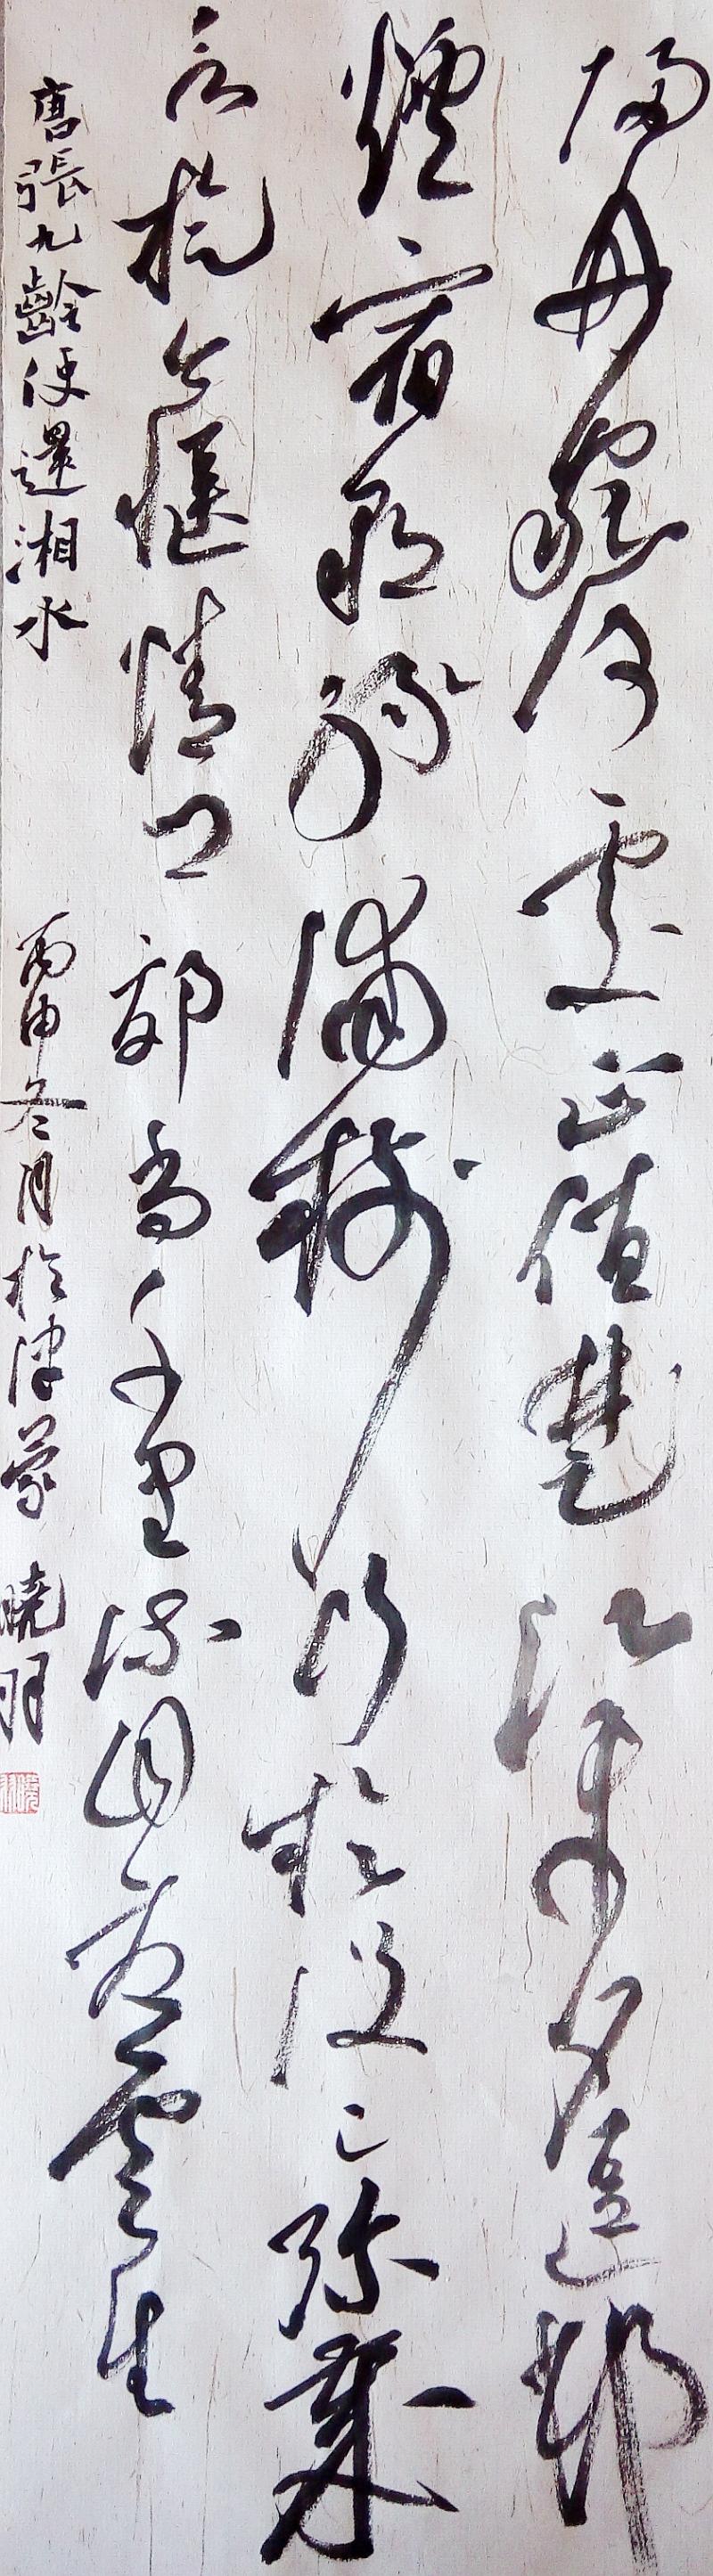 歸舟宛何處正值楚江平夕逗邨
煙宿朝緣浦樹行於役已弥歲
言旋今愜情鄉郊尚千里流目夏雲生
唐張九齡使還湘水 丙申冬月於津 曉羽